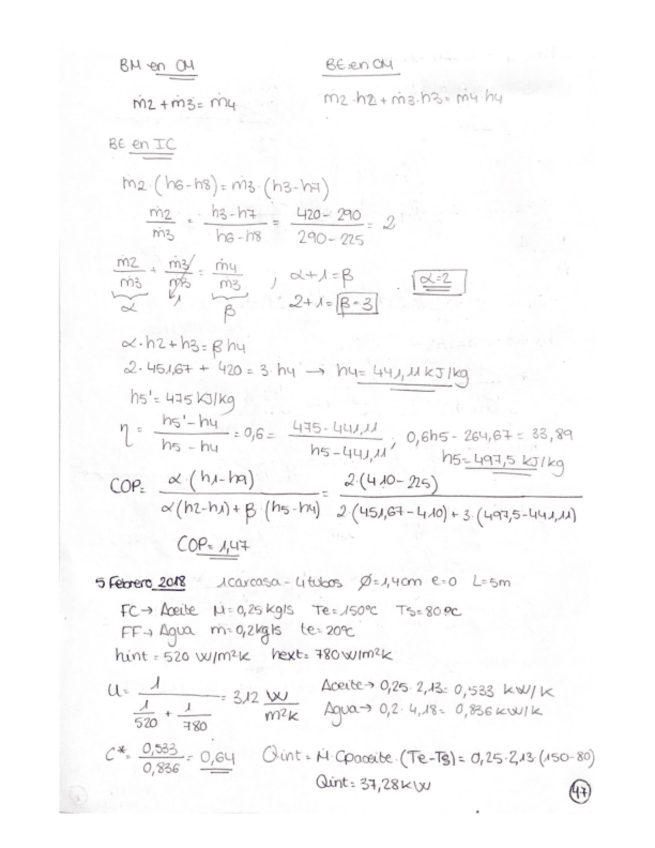 BM en CM
BE en CM
ṁ2 + ṁ3 = ṁ4
ṁ2·h2 + ṁ3·h3 = ṁ4·h4
BE en IC
ṁ2·(h6-h8) = ṁ3·(h3-h7)
ṁ2/ṁ3 = (h3-h7)/(h6-h8) = (420-290)/(290-225) = 2
ṁ2/ṁ3 + ṁ3/ṁ3 = ṁ4/ṁ3 , α+1=β α=2
α 1 β 2+1=β=3
α·h2+h3=βh4
2·451,67 + 420 = 3·h4 → h4=441,11 kJ/kg
h5'=475 kJ/kg
η = (h5'-h4)/(h5-h4) = 0,6 = (475-441,11)/(h5-441,11) ; 0,6h5-264,67 = 33,89
h5=497,5 kJ/kg
COP= α·(h1-h9)/(α(h2-h1)+β·(h5-h4)) = 2·(410-225)/(2·(451,67-410)+3·(497,5-441,11))
COP=1,47
5 Febrero 2018 1carcasa-4tubos Ø=1,4cm e=0 L=5m
FC→ Aceite M=0,25kg/s Te=150ºC Ts=80ºC
FF→ Agua m=0,2kg/s te=20ºC
hint=520 W/m²K hext=780W/m²K
U= 1/(1/520 + 1/780) = 312 W/m²K
Aceite→ 0,25·2,13= 0,533 kW/K
Agua→ 0,2·4,18= 0,836kW/K
C*= 0,533/0,836 = 0,64 Qint= M·Cpaceite·(Te-Ts)= 0,25·2,13·(150-80)
Qint=37,28kW
47